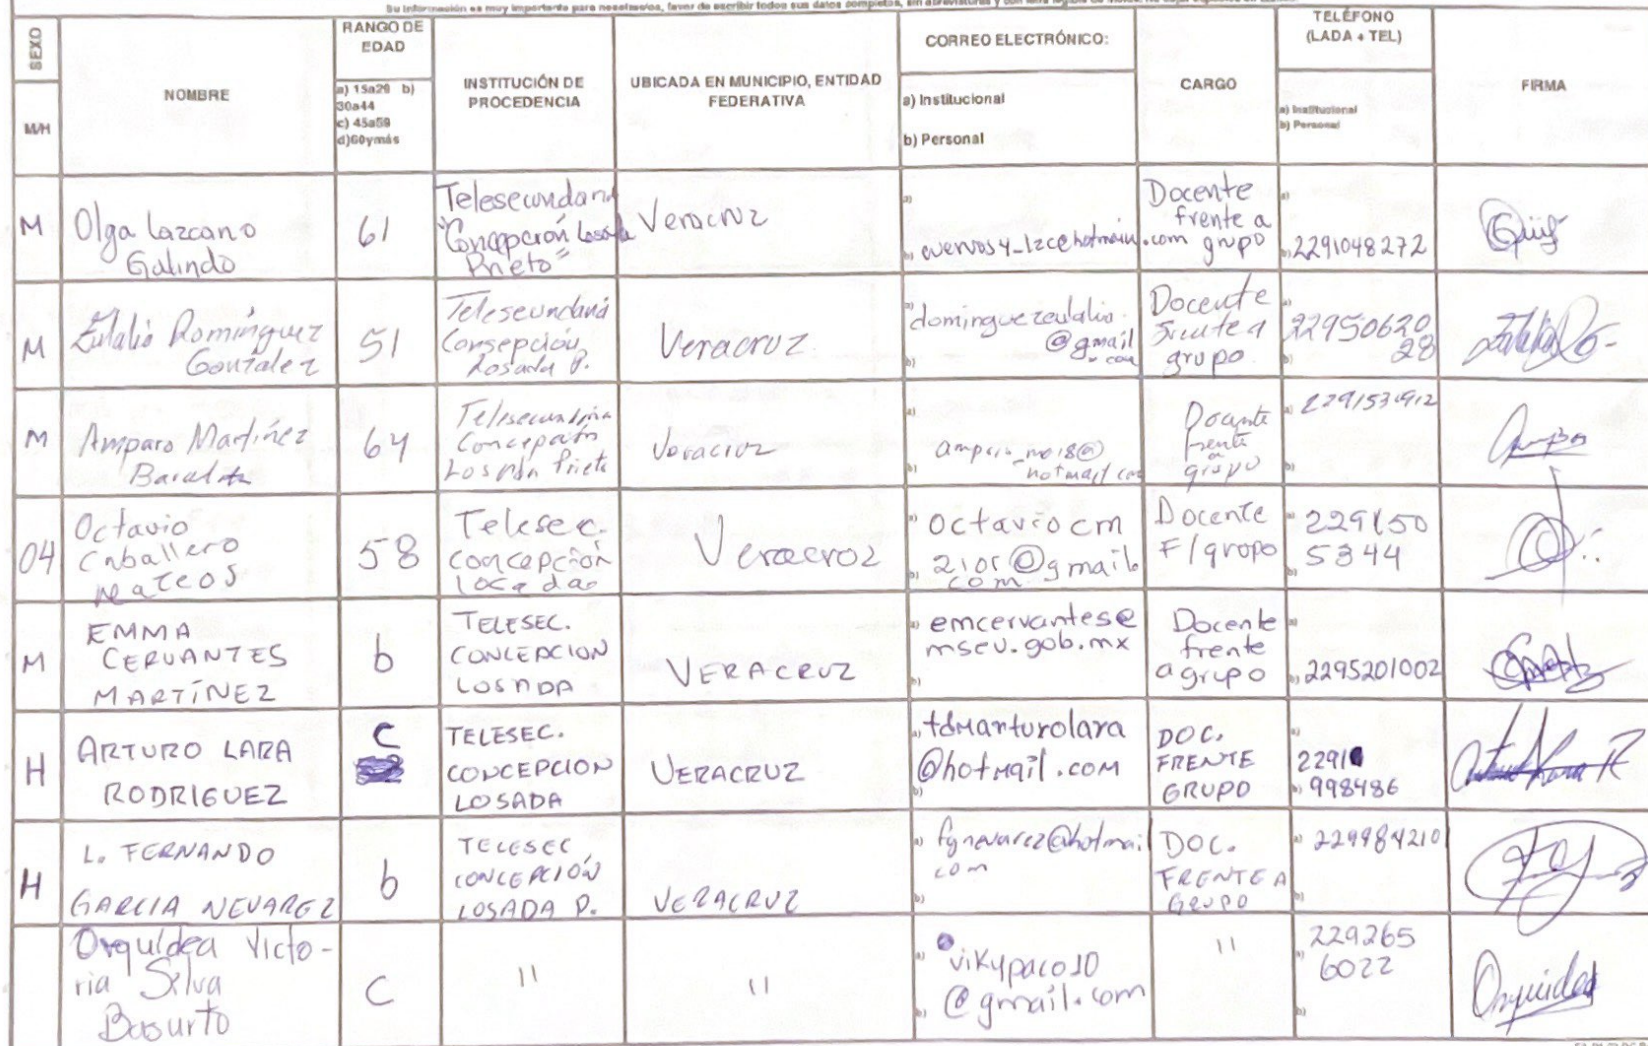 Su información es muy importante para nosotros/as, favor de escribir todos sus datos completos, sin abreviaturas y con letra legible
SEXO
M/H
NOMBRE
RANGO DE
EDAD
a) 15a29 b)
30a44
c) 45a59
d)60ymás
INSTITUCIÓN DE
PROCEDENCIA
UBICADA EN MUNICIPIO, ENTIDAD
FEDERATIVA
CORREO ELECTRÓNICO:
a) Institucional
b) Personal
CARGO
TELÉFONO
(LADA + TEL)
a) Institucional
b) Personal
FIRMA
M
Olga Lazcano
Galindo
61
Telesecundari
"Concepción Losada
Prieto"
Veracruz
a)
b)
Docente
frente a
grupo
a)
b) 2291048272
M
Eulalia Domínguez
González
51
Telesecundaria
Consepción
Losada P.
Veracruz
a) dominguezeulalia
@gmail
.com
b)
Docente
frente a
grupo
a) 22950620
28
b)
M
Amparo Martínez
64
Telesecundaria
Concepción
Losada Prieto
Veracruz
a)
b)
hotmail.com
Docente
frente
a
grupo
a)
b)
04
Octavio
Caballero
Mateos
58
Telesec.
concepción
Veracroz
a) octaviocm
b) @gmail.
com
Docente
F/gropo
a) 229150
5344
b)
M
EMMA
CERVANTES
MARTÍNEZ
b
TELESEC.
CONCEPCION
LOSADA
VERACRUZ
a) emcervantes@
msev.gob.mx
b)
Docente
frente
a grupo
a)
b) 2295201002
H
ARTURO LARA
RODRIGUEZ
C
TELESEC.
CONCEPCION
LOSADA
VERACRUZ
a) tdmarturolara
@hotmail.com
b)
DOC.
FRENTE
GRUPO
a)
2291
b) 998486
H
L. FERNANDO
GARCIA NEVAREZ
b
TELESEC
CONCEPCIÓN
LOSADA P.
VERACRUZ
a) fgnevarez@hotmai
com
b)
DOC.
FRENTE A
GRUPO
a) 229984210
b)
Orquídea Victo-
ria Silva
Basurto
C
11
11
a) vikypaco10
@gmail.com
b)
11
a) 229265
6022
b)
Orquidea